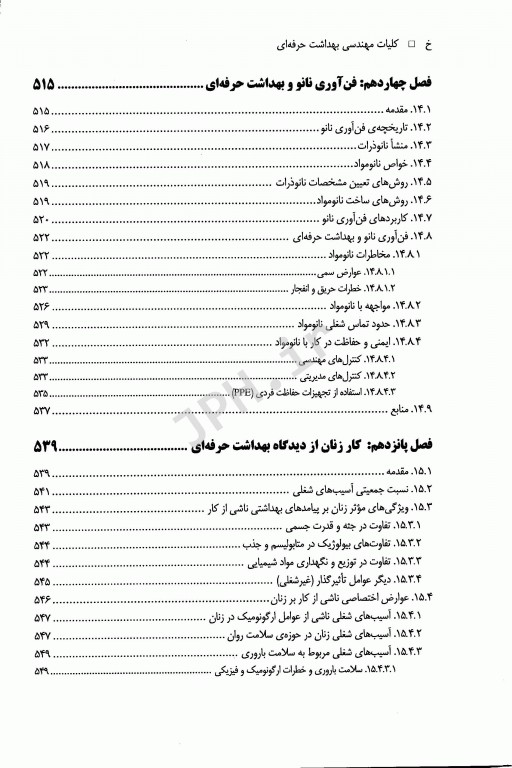 خ □ کلیات مهندسی بهداشت حرفه‌ای
فصل چهاردهم: فن‌آوری نانو و بهداشت حرفه‌ای ........ ۵۱۵
۱۴.۱. مقدمه ........ ۵۱۵
۱۴.۲. تاریخچه‌ی فن‌آوری نانو ........ ۵۱۶
۱۴.۳. منشأ نانوذرات ........ ۵۱۷
۱۴.۴. خواص نانومواد ........ ۵۱۸
۱۴.۵. روش‌های تعیین مشخصات نانوذرات ........ ۵۱۹
۱۴.۶. روش‌های ساخت نانومواد ........ ۵۱۹
۱۴.۷. کاربردهای فن‌آوری نانو ........ ۵۲۰
۱۴.۸. فن‌آوری نانو و بهداشت حرفه‌ای ........ ۵۲۲
۱۴.۸.۱. مخاطرات نانومواد ........ ۵۲۲
۱۴.۸.۱.۱. عوارض سمی ........ ۵۲۲
۱۴.۸.۱.۲. خطرات حریق و انفجار ........ ۵۲۳
۱۴.۸.۲. مواجهه با نانومواد ........ ۵۲۶
۱۴.۸.۳. حدود تماس شغلی نانومواد ........ ۵۲۹
۱۴.۸.۴. ایمنی و حفاظت در کار با نانومواد ........ ۵۳۲
۱۴.۸.۴.۱. کنترل‌های مهندسی ........ ۵۳۳
۱۴.۸.۴.۲. کنترل‌های مدیریتی ........ ۵۳۳
۱۴.۸.۴.۳. استفاده از تجهیزات حفاظت فردی (PPE) ........ ۵۳۵
۱۴.۹. منابع ........ ۵۳۷
فصل پانزدهم: کار زنان از دیدگاه بهداشت حرفه‌ای ........ ۵۳۹
۱۵.۱. مقدمه ........ ۵۳۹
۱۵.۲. نسبت جمعیتی آسیب‌های شغلی ........ ۵۴۱
۱۵.۳. ویژگی‌های مؤثر زنان بر پیامدهای بهداشتی ناشی از کار ........ ۵۴۳
۱۵.۳.۱. تفاوت در جثه و قدرت جسمی ........ ۵۴۳
۱۵.۳.۲. تفاوت‌های بیولوژیک در متابولیسم و جذب ........ ۵۴۴
۱۵.۳.۳. تفاوت در توزیع و نگهداری مواد شیمیایی ........ ۵۴۴
۱۵.۳.۴. دیگر عوامل تأثیرگذار (غیرشغلی) ........ ۵۴۵
۱۵.۴. عوارض اختصاصی ناشی از کار بر زنان ........ ۵۴۶
۱۵.۴.۱. آسیب‌های شغلی ناشی از عوامل ارگونومیک در زنان ........ ۵۴۷
۱۵.۴.۲. آسیب‌های شغلی زنان در حوزه‌ی سلامت روان ........ ۵۴۷
۱۵.۴.۳. آسیب‌های شغلی مربوط به سلامت باروری ........ ۵۴۹
۱۵.۴.۳.۱. سلامت باروری و خطرات ارگونومیک و فیزیکی ........ ۵۴۹
JPH.ir